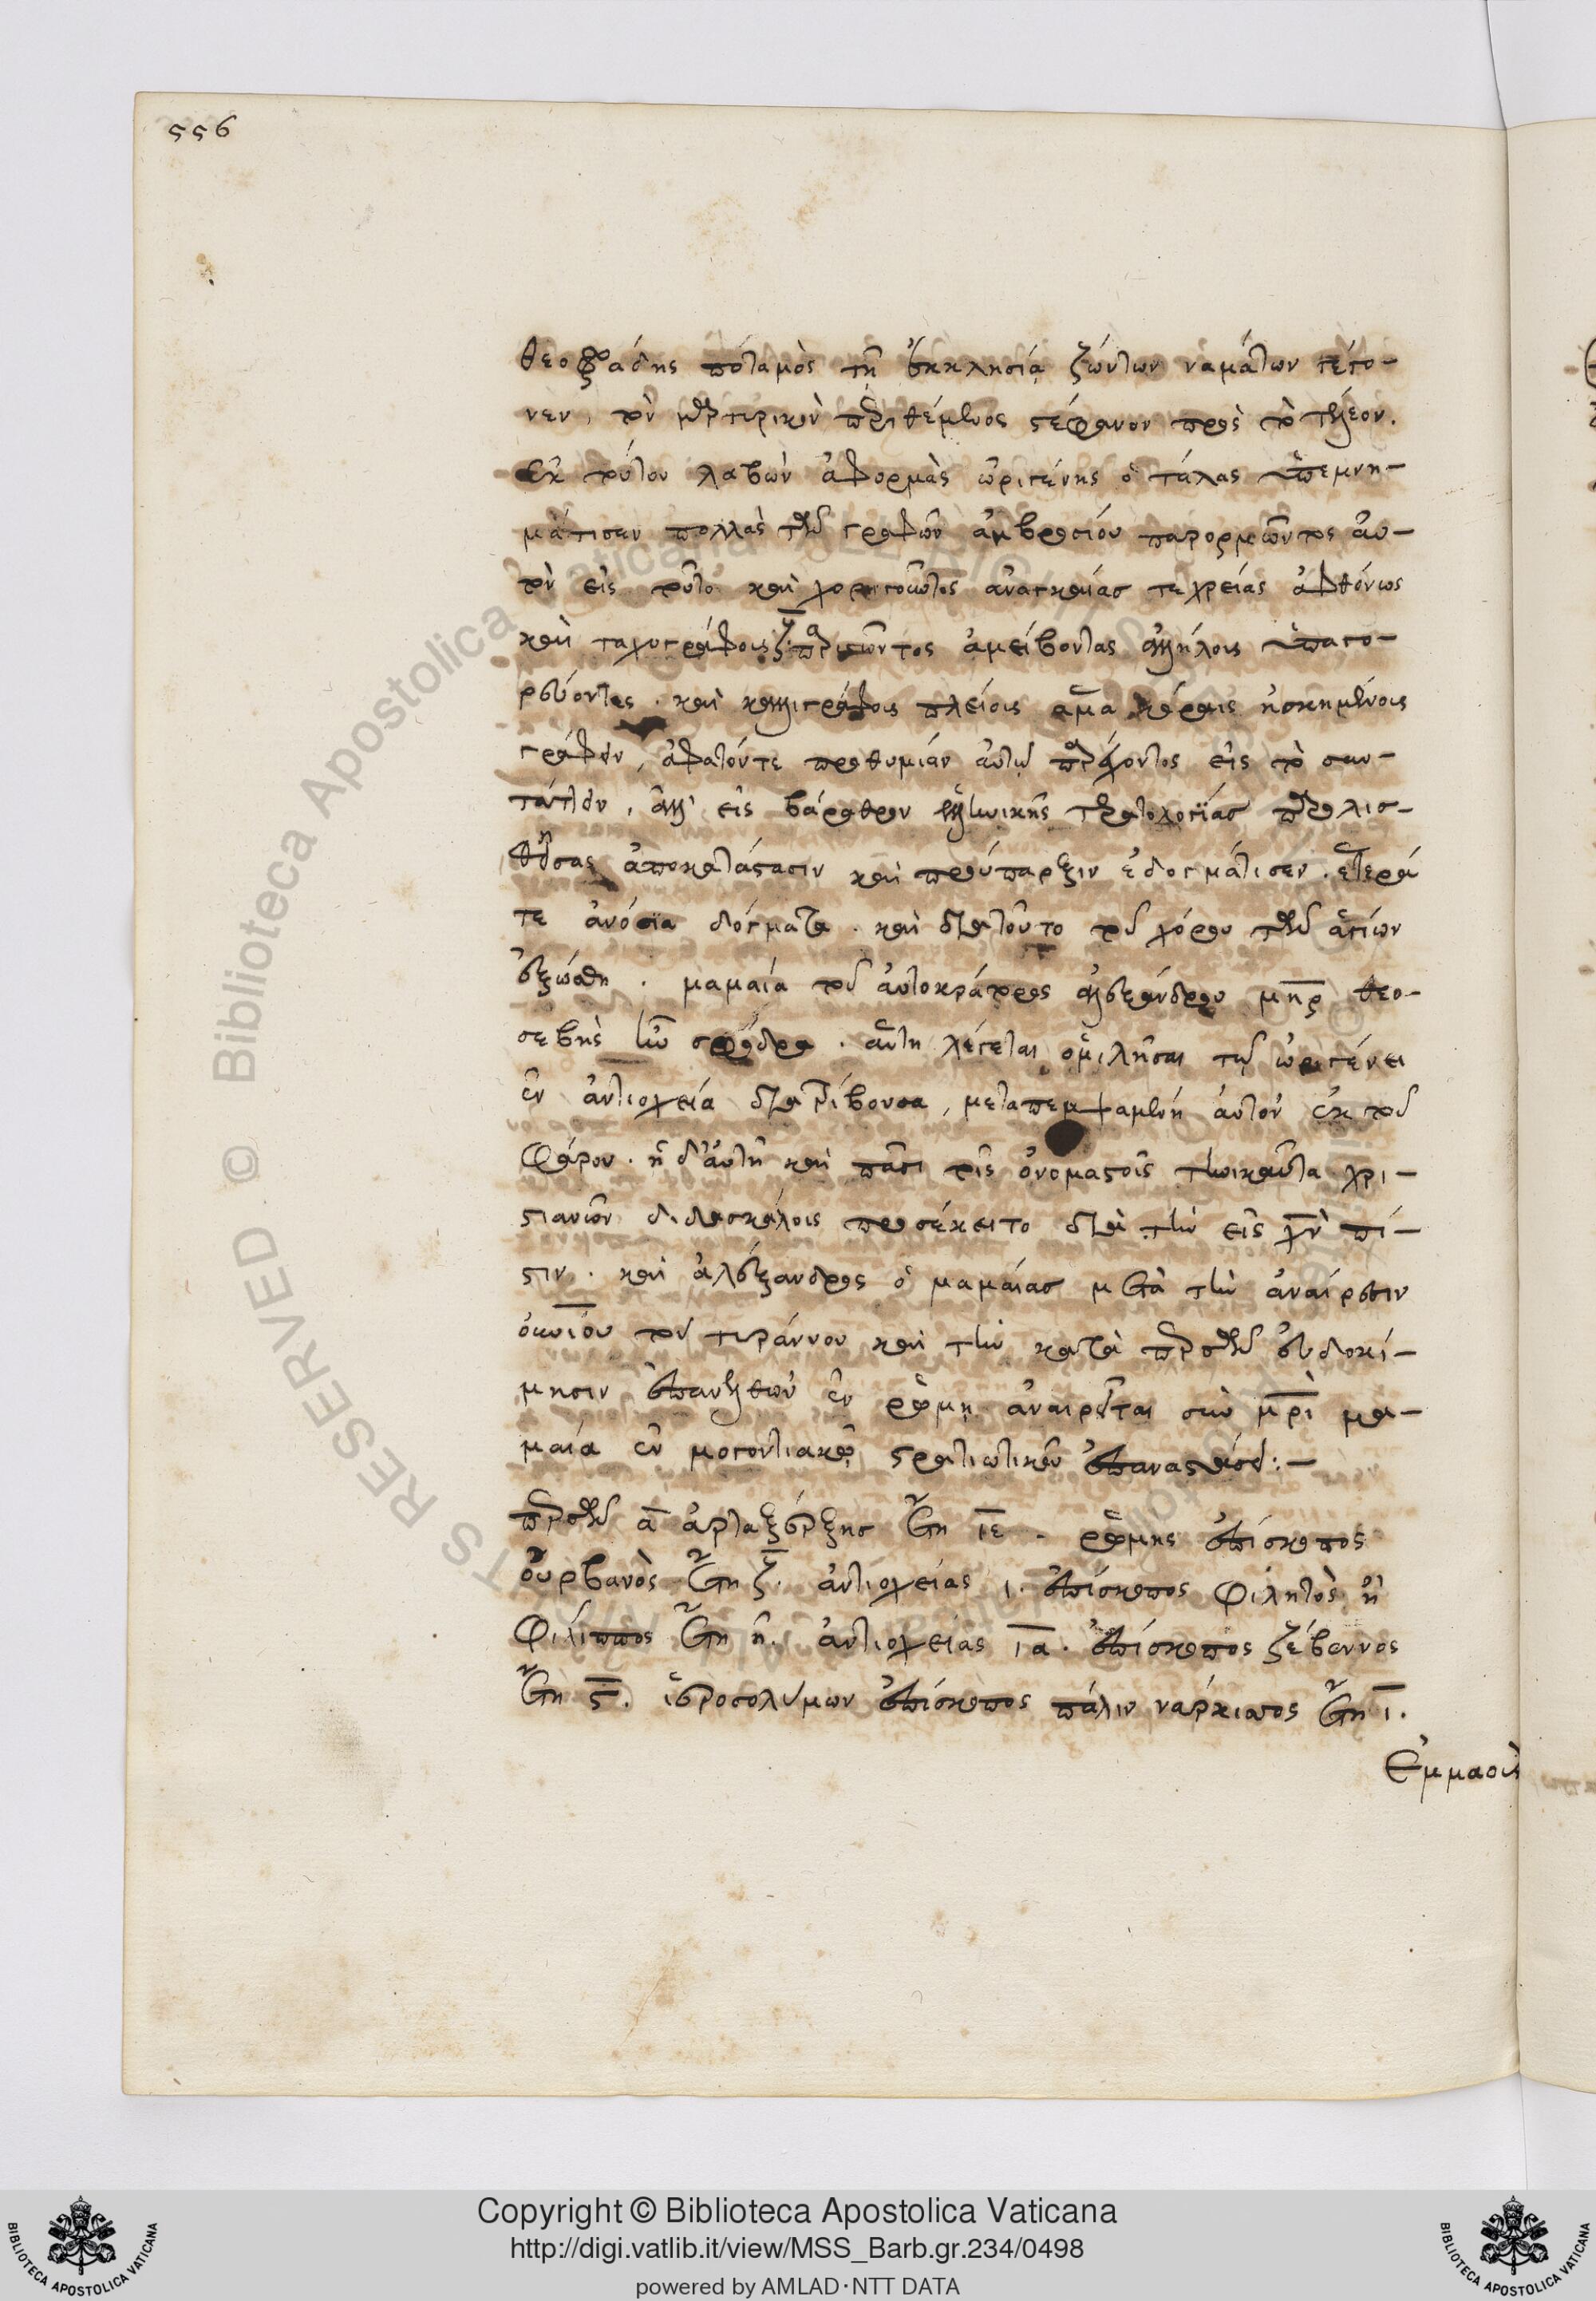 556
θεοφραδὴς ποταμὸς τῇ ἐκκλησίᾳ ζώντων ναμάτων γέγο-
νεν, τὸν μαρτυρικὸν περιθέμενος στέφανον πρὸς τὸ τέλεον.
ἐκ τούτου λαβὼν ἀφορμὰς ὠριγένης ὁ τάλας ὑπεμνη-
μάτισεν πολλὰς τῶν γραφῶν ἀμβροσίου παρορμῶντος αὐ-
τὸν εἰς τοῦτο καὶ χορηγοῦντος ἀναγκαίας τε χρείας ἀφθόνως
καὶ ταχυγράφοις ζ̅ παριστῶντος ἀμείβοντας ἀλλήλοις ὑπαγο-
ρεύοντες. καὶ καλλιγράφοις πλείοις ἅμα κόραις ἠσκημέναις
γράφειν, ἄφατόν τε προθυμίαν αὐτῷ παρέχοντος εἰς τὸ συν-
τάττειν, ἀλλ' εἰς βάραθρον ἑλληνικῆς τερατολογίας παρολισ-
θήσας ἀποκατάστασιν καὶ προΰπαρξιν ἐδογμάτισεν. ἕτερά
τε ἀνόσια δόγματα. καὶ διὰ τοῦτο τοῦ χόρου τῶν ἁγίων
ἐξώσθη. μαμαία τοῦ αὐτοκράτορος ἀλεξάνδρου μηρ θεο-
σεβὴς ἦν σφόδρα. αὕτη λέγεται ὁμιλῆσαι τῷ ὠριγένει
ἐν ἀντιοχείᾳ διατρίβουσα, μεταπεμψαμένη αὐτὸν ἐκ τοῦ
Φάρου. ἡ δ' αὐτὴ καὶ πᾶσι τοῖς ὀνομαστοῖς τηνικαῦτα χρι-
στιανῶν διδασκάλοις προσέκειτο διὰ τὴν εἰς χν πί-
στιν. καὶ ἀλέξανδρος ὁ μαμαίας μετὰ τὴν ἀναίρεσιν
τοῦ τυράννου καὶ τὴν κατὰ περσῶν εὐδοκί-
μησιν ἐπανελθὼν ἐν ῥώμῃ ἀναιρεῖται σὺν μρὶ μα-
μαίᾳ ἐν μογοντιακῷ στρατιωτικῶν ἐπαναστάσει:-
περσῶν α̅ ἀρταξέρξης ἔτη ι̅ε̅. ῥώμης ἐπίσκοπος
οὐρβανὸς ἔτη ζ̅. ἀντιοχείας ι. ἐπίσκοπος φιλητὸς ἢ
Φίλιππος ἔτη η. ἀντιοχείας ι̅α̅. ἐπίσκοπος ζέβεννος
ἔτη ϛ̅. ἱεροσολύμων ἐπίσκοπος πάλιν νάρκισσος ἔτη ι̅.
Ἐμμαοὺς
Biblioteca Apostolica Vaticana ALL RIGHTS RESERVED ©
Copyright © Biblioteca Apostolica Vaticana
http://digi.vatlib.it/view/MSS_Barb.gr.234/0498
powered by AMLAD·NTT DATA
BIBLIOTECA APOSTOLICA VATICANA
BIBLIOTECA APOSTOLICA VATICANA